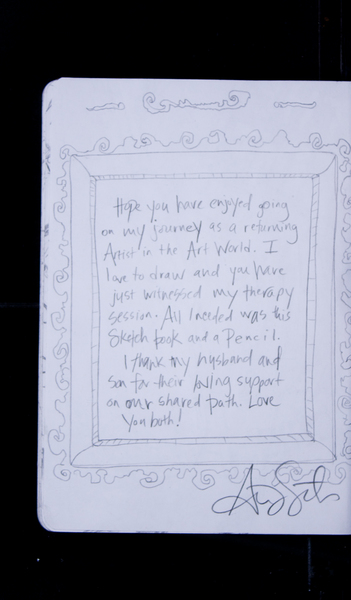 Hope you have enjoyed going
on my journey as a returning
Artist in the Art World. I
love to draw and you have
just witnessed my therapy
session. All I needed was this
Sketch book and a Pencil.
I thank my husband and
son for their loving support
on our shared path. Love
You both!